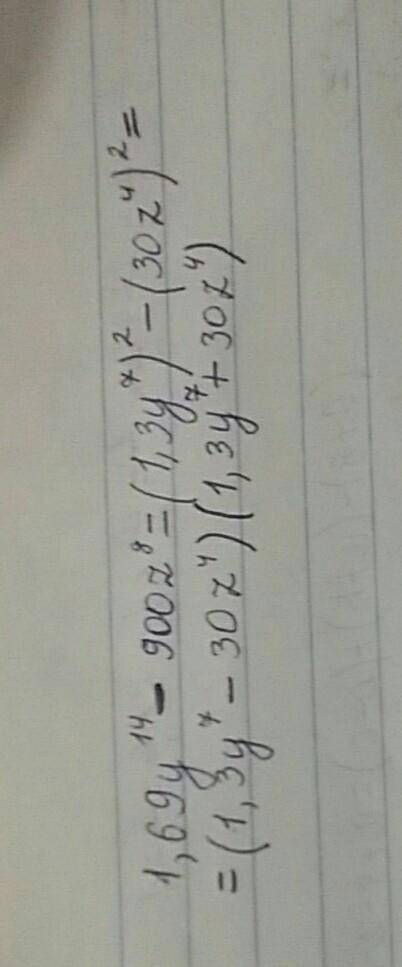 1,69y¹⁴ - 900z⁸ = (1,3y⁷)² - (30z⁴)² =
= (1,3y⁷ - 30z⁴)(1,3y⁷ + 30z⁴)